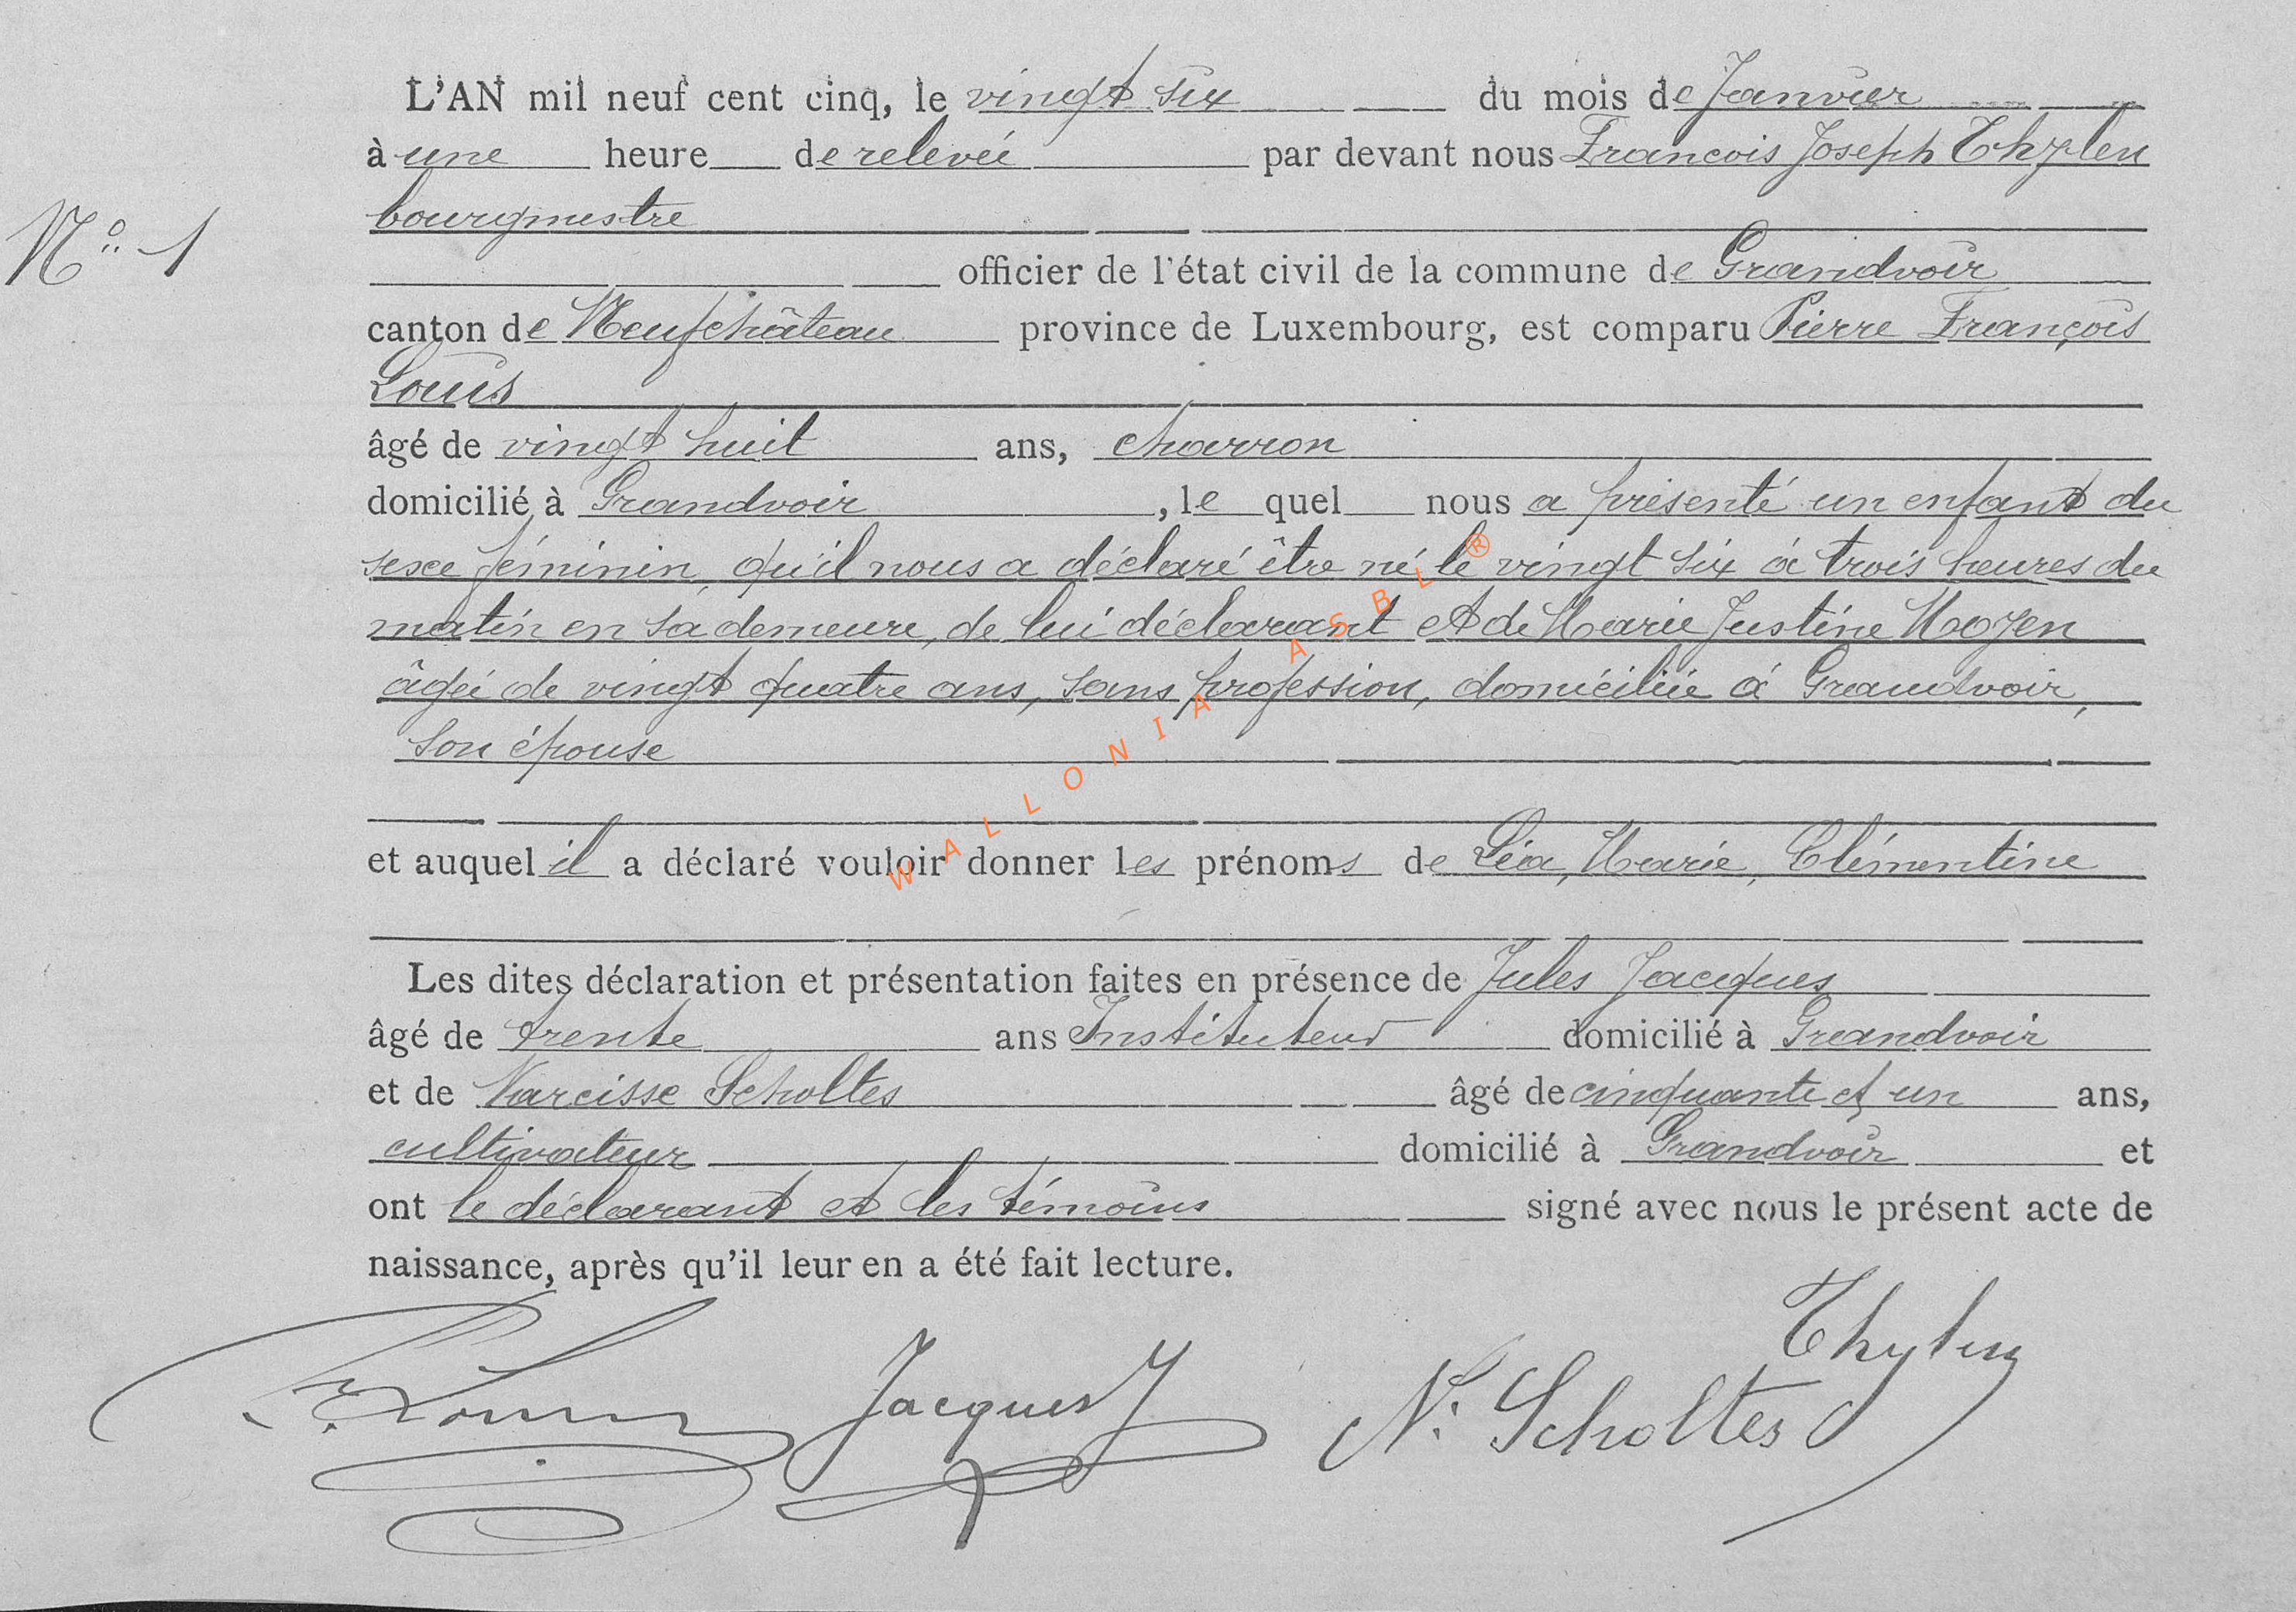 L'AN mil neuf cent cinq, le vingt six du mois de Janvier
à une heure de relevée par devant nous François Joseph Thylen
bourgmestre
N° 1
officier de l'état civil de la commune de Grandvoir
canton de Neufchâteau province de Luxembourg, est comparu Pierre François
Louis
âgé de vingt huit ans, charron
domicilié à Grandvoir, le quel nous a présenté un enfant du
sexe féminin, qu'il nous a déclaré être né le vingt six à trois heures du
matin en sa demeure, de lui déclarant et de Marie Justine Noyen
âgée de vingt quatre ans, sans profession, domiciliée à Grandvoir,
son épouse
et auquel il a déclaré vouloir donner les prénoms de Léa, Marie, Clémentine
Les dites déclaration et présentation faites en présence de Jules Jacques
âgé de trente ans Instituteur domicilié à Grandvoir
et de Narcisse Scholtes âgé de cinquante et un ans,
cultivateur domicilié à Grandvoir et
ont le déclarant et les témoins signé avec nous le présent acte de
naissance, après qu'il leur en a été fait lecture.
Thylen
Louis Jacques J N. Scholtes
WALLONIA ASBL ®